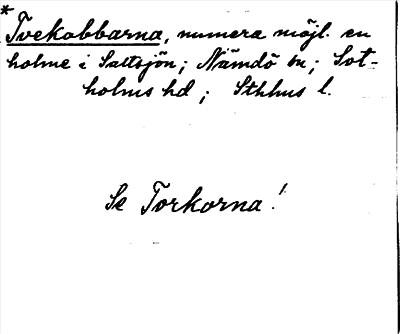 * Tvekobbarna, numera möjl. en
holme i Saltsjön; Nämdö sn; Sot-
holms hd; Sthlms l.
Se Torkorna!